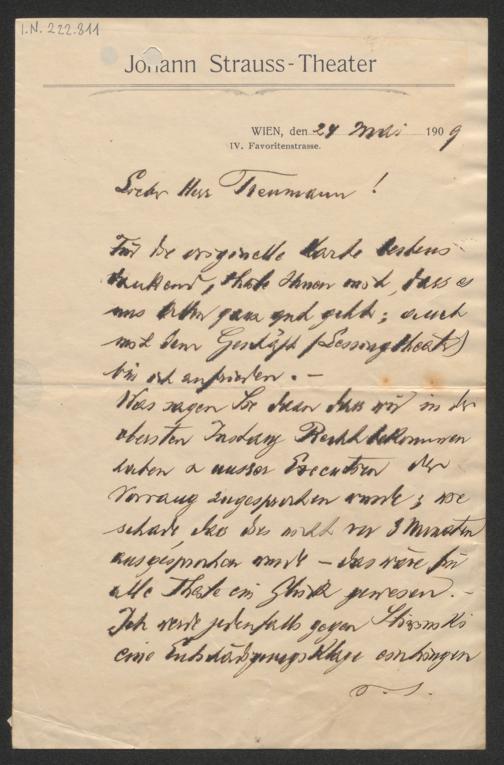 I.N. 222.811
Johann Strauss-Theater
WIEN, den 24 Mai 1909
IV. Favoritenstrasse.
Lieber Herr Treumann!
Für die originelle Karte bestens
dankend, theile Ihnen mit, dass es
uns allen ganz gut geht; auch
mit dem Geschäft (Lessingtheater)
bin ich zufrieden. —
Was sagen Sie dazu dass wir in der
obersten Instanz Recht bekommen
haben u unserer Execution der
Vorrang zugesprochen wurde; wie
schade dass dies nicht vor 3 Monaten
ausgesprochen wurde — das wäre für
alle Theile ein Glück gewesen. —
Ich werde jedenfalls gegen
eine Entschädigungsklage einbringen